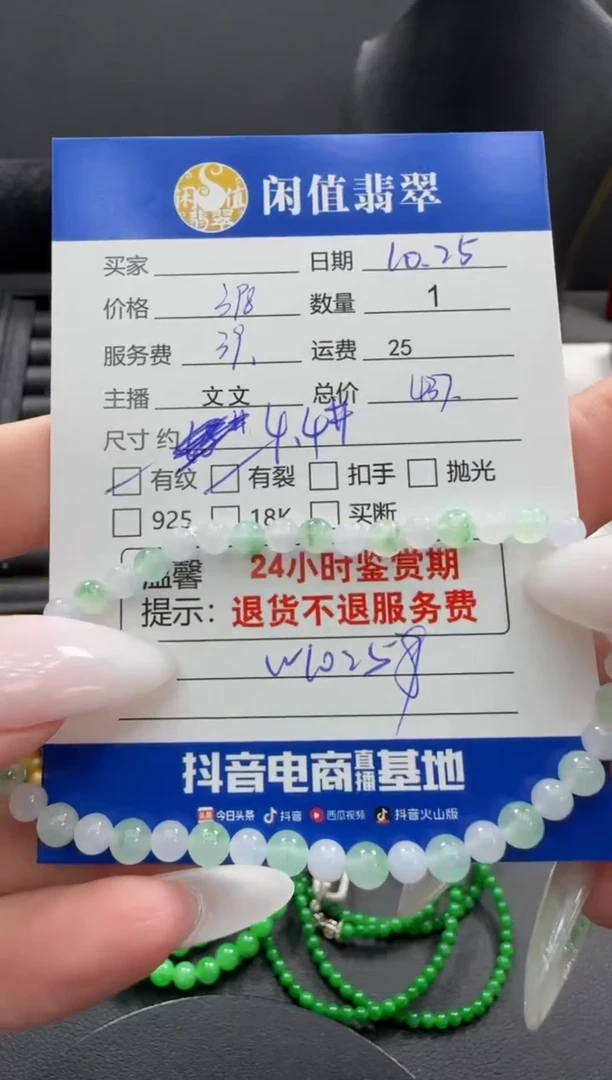 闲值翡翠 闲值翡翠
买家 日期 10.25
价格 398 数量 1
服务费 39. 运费 25
主播 文文 总价 437.
尺寸 约 4.4#
有纹 有裂 扣手 抛光
925 18K 买断
温馨 24小时鉴赏期
提示: 退货不退服务费
W1025
抖音电商直播基地
今日头条 抖音 西瓜视频 抖音火山版